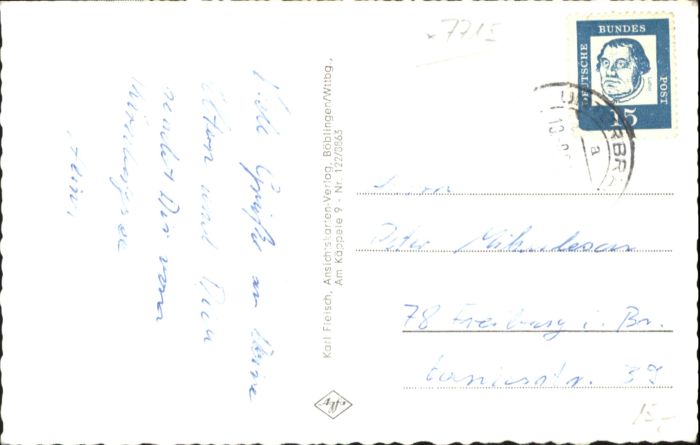 7715
DEUTSCHE
BUNDES
POST
15
Viele Grüße an Deine
Eltern und Dich
sendet Dir vom
Heini
Karl Fleisch, Ansichtskarten-Verlag, Böblingen/Wttbg.,
Am Käppele 9 - Nr. 122/3863
Herrn
Peter
78 Freiburg i. Br.
39
Agfa
15,-